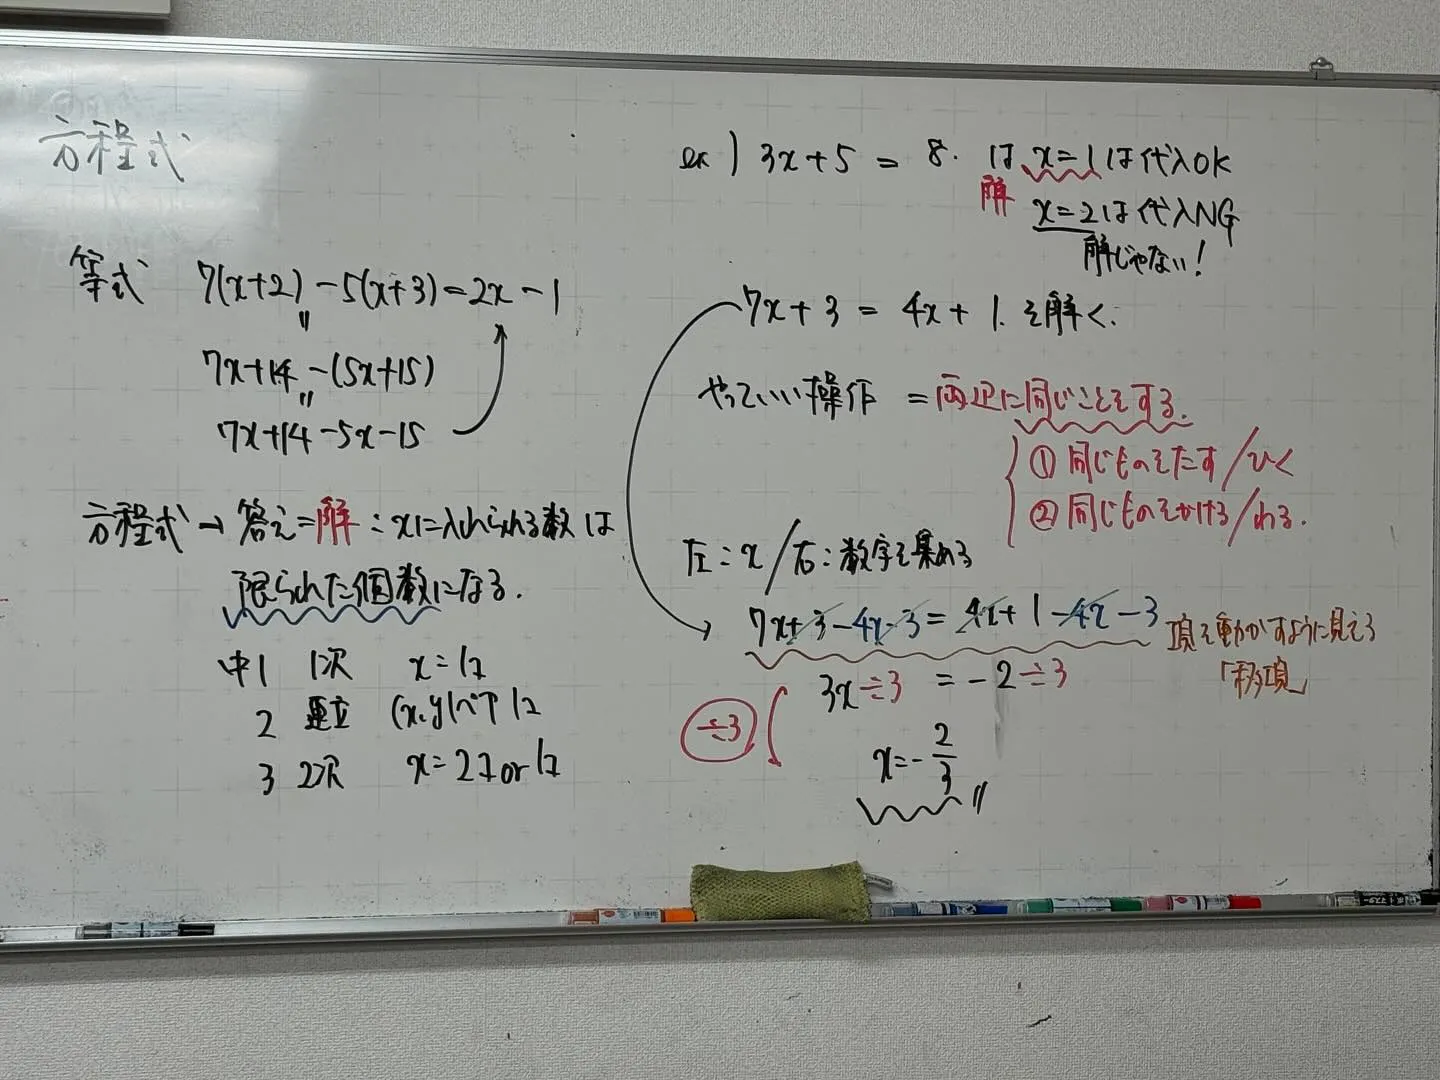 方程式
等式 7(x+2)-5(x+3)=2x-1
〃
7x+14-(5x+15)
〃
7x+14-5x-15
方程式→答え=解：xに入れられる数は
限られた個数になる.
中1 1次 x=1コ
2 連立 (x,y)ペア1コ
3 2次 x=2コor1コ
ex) 3x+5=8. は x=1は代入OK
解
x=2は代入NG
解じゃない!
7x+3=4x+1.を解く.
やっていい操作 =両辺に同じことをする.
①同じものをたす/ひく
②同じものをかける/わる.
左：x/右：数字を集める
7x+3-4x-3=4x+1-4x-3 項を動かすように見える
「移項」
3x÷3=-2÷3
÷3
x=-2/3〃